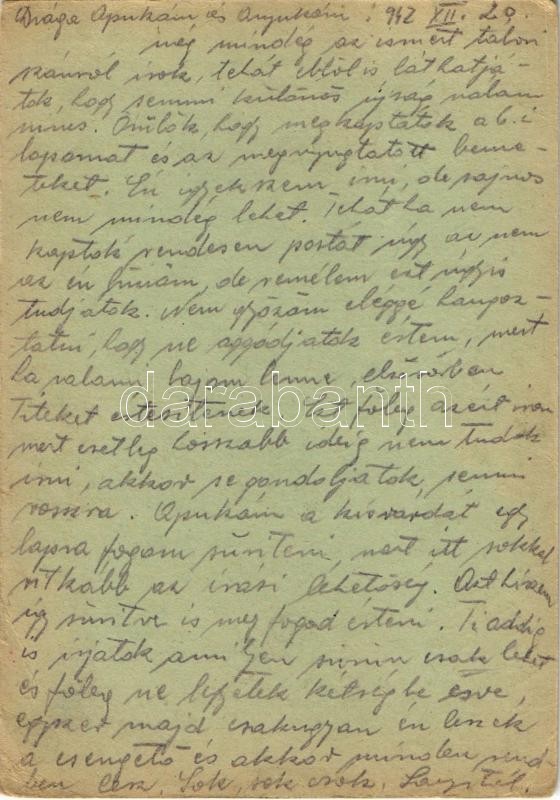 Drága Apukám és Anyukám! 942 XII. 20.
még mindég az ismert tábori
számról írok, tehát ebből is láthatjá-
tok, hogy semmi különös újság nálam
nincs. Örülök, hogy megkaptátok a 6.-i
lapomat és az megnyugtatott benne-
teket. Én igyekszem írni, de sajnos
nem mindég lehet. Tehát ha nem
kaptok rendesen postát úgy az nem
az én hibám, de remélem ezt úgyis
tudjátok. Nem győzöm eléggé hangoz-
tatni, hogy ne aggódjatok értem, mert
ha valami bajom lenne, elsősorban
Titeket értesítenék, ezt főleg azért írom
mert esetleg hosszabb ideig nem tudok
írni, akkor se gondoljatok semmi
rosszra. Apukám a
lapra fogom sűríteni, mert itt sokkal
ritkább az írási lehetőség. Azt hiszem
így sűrítve is meg fogod érteni. Ti addig
is írjatok amilyen sűrűn csak lehet
és főleg ne legyetek kétségbe esve,
egyszer majd csakugyan én leszek
a csengető és akkor minden rend
ben lesz. Sok, sok csók,
darabanth